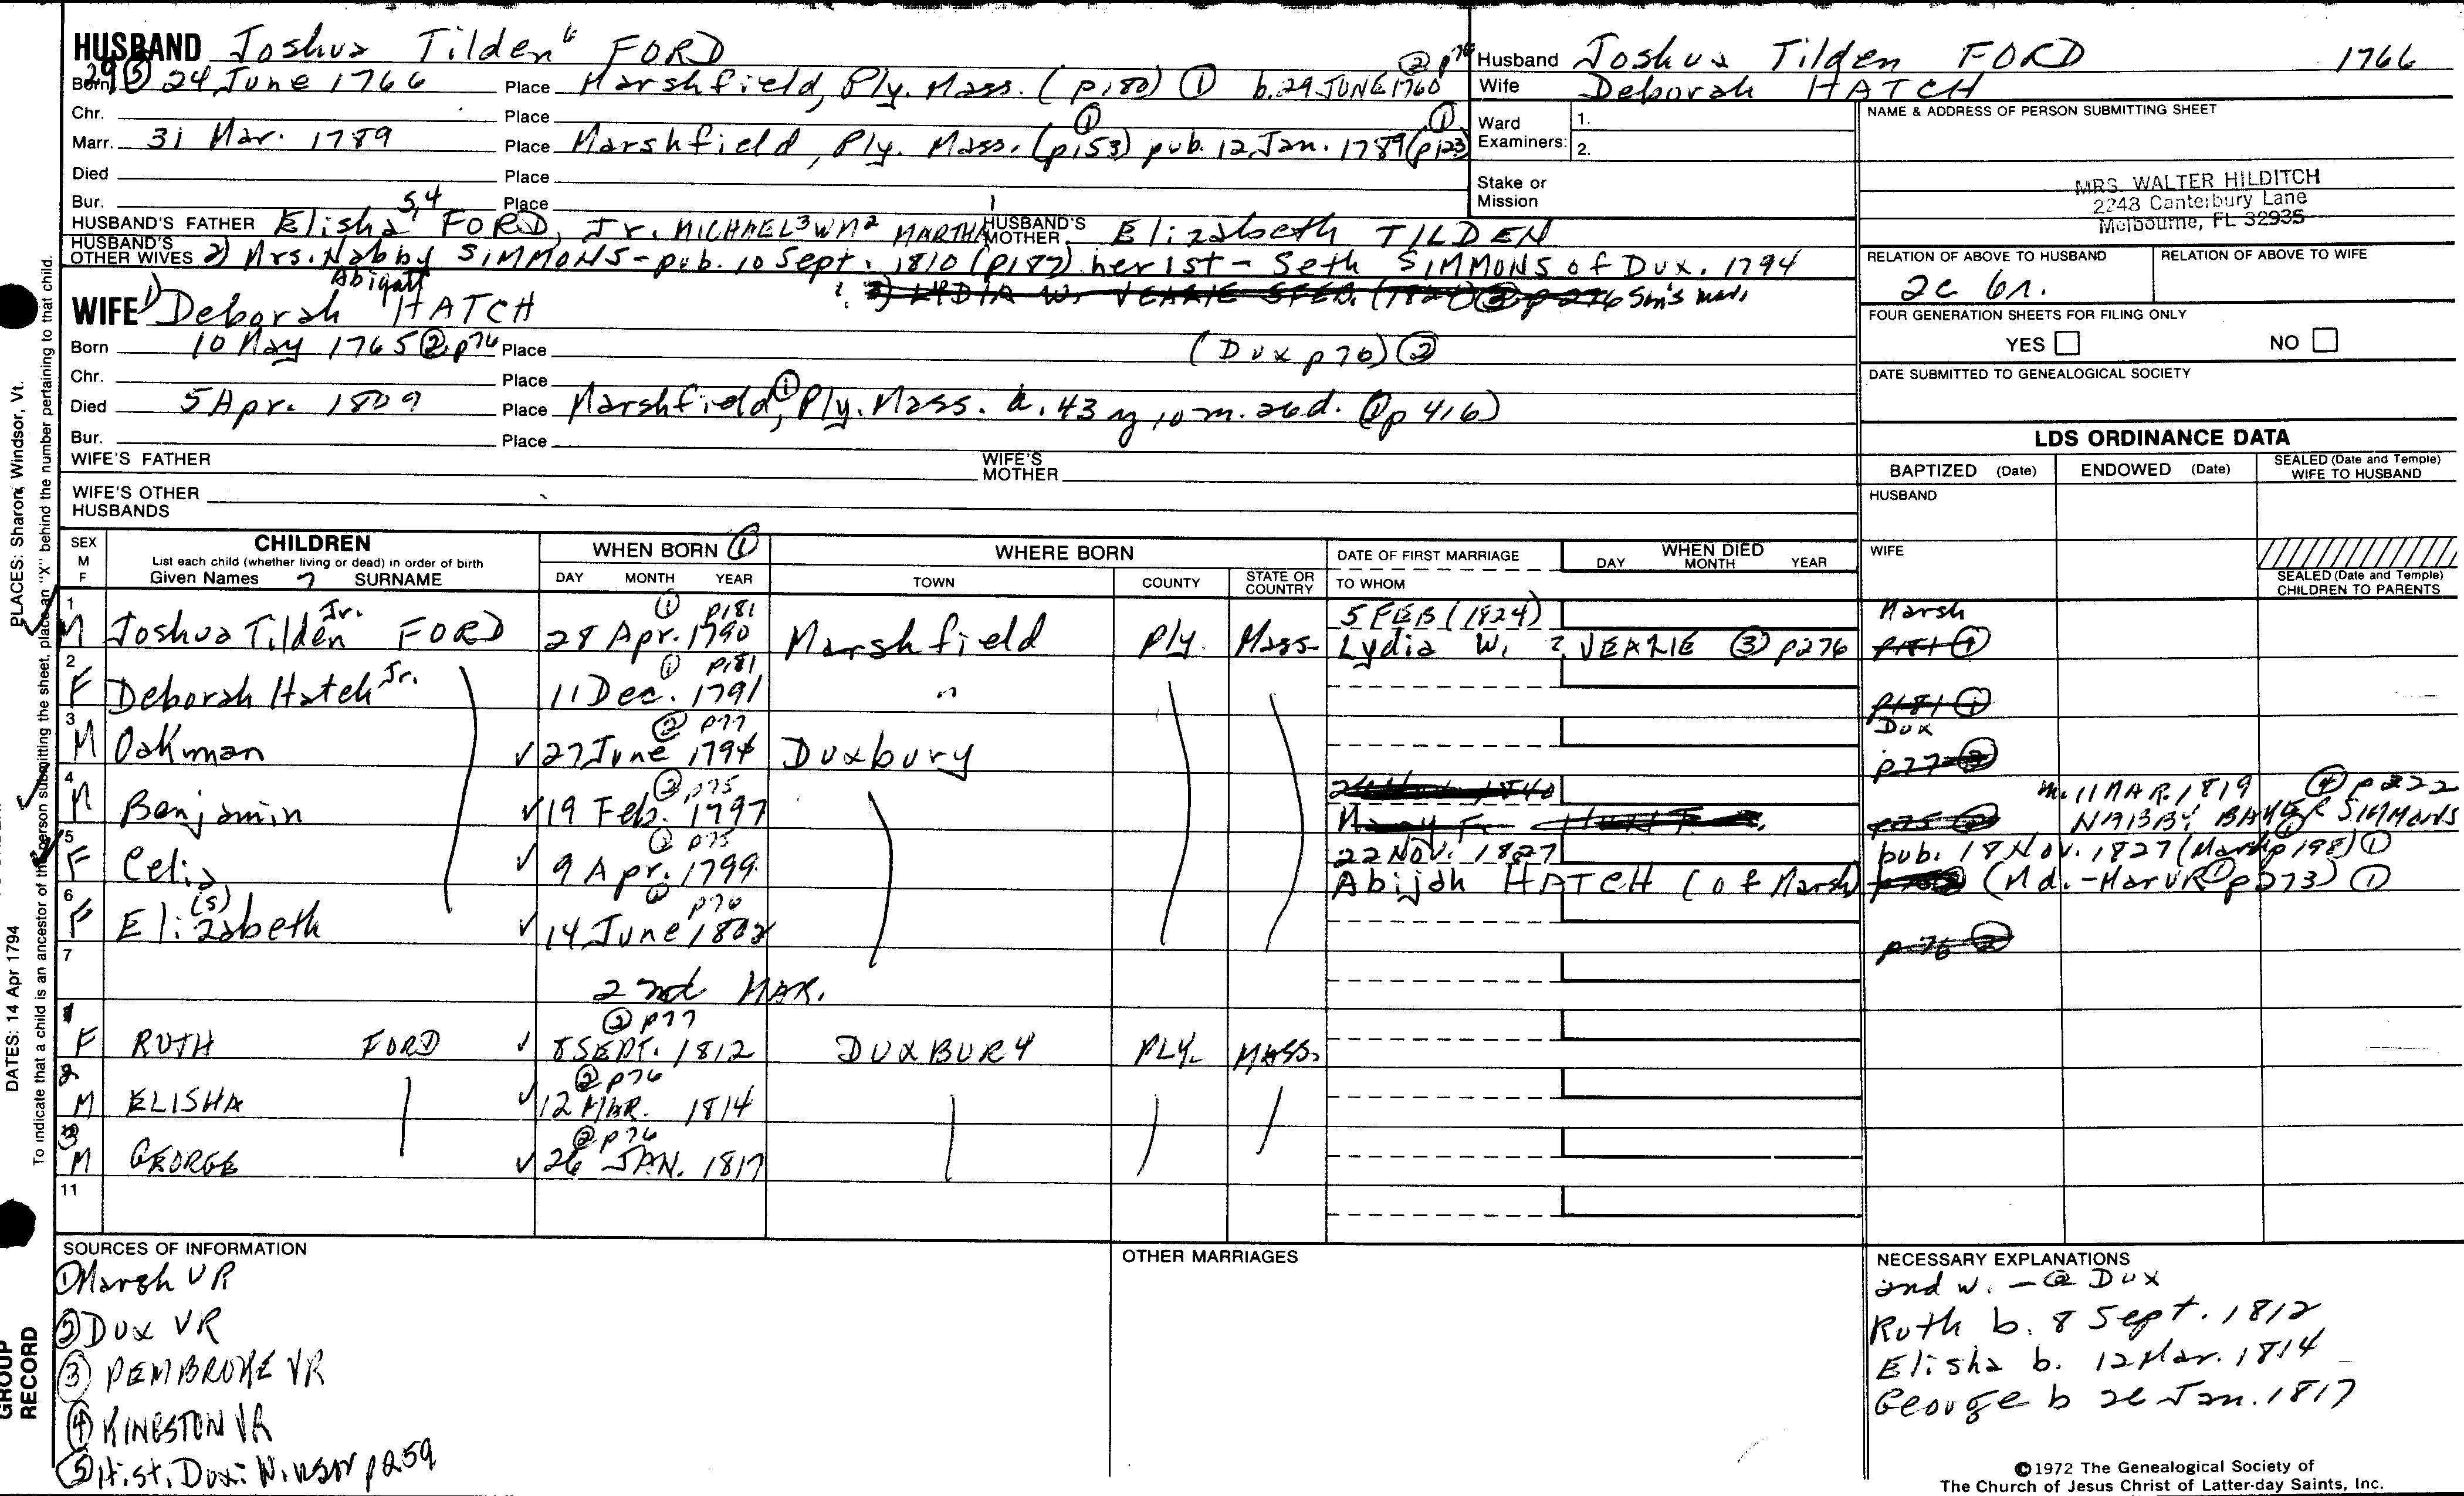 HUSBAND Joshua Tilden 6 FORD
Born 29 ⑤ 24 June 1766 Place Marshfield, Ply. Mass. (p180) ① b. 29 JUNE 1760 ② p76
Chr. Place
Marr. 31 Mar. 1789 Place Marshfield, Ply. Mass. (p153) ① pub. 12 Jan. 1789 (p123) ①
Died Place
Bur. Place
HUSBAND'S FATHER Elisha 5,4 FORD, Jr. MICHAEL3 WM2 MARTHA1 HUSBAND'S MOTHER Elizabeth TILDEN
HUSBAND'S OTHER WIVES 2) Mrs. Nabby SIMMONS - pub. 10 Sept. 1810 (p187) her 1st - Seth SIMMONS of Dux. 1794
Abigail
? 3) LYDIA W. VEAZIE 5 FEB. (1824) ③ p 276 Son's mar.
WIFE 1) Deborah HATCH
Born 10 May 1765 ② p76 Place (Dux p76) ②
Chr. Place
Died 5 Apr. 1809 Place Marshfield, ① Ply. Mass. a. 43 y 10 m. 26 d. (① p 416)
Bur. Place
WIFE'S FATHER WIFE'S MOTHER
WIFE'S OTHER HUSBANDS
Husband Joshua Tilden FORD 1766
Wife Deborah HATCH
Ward Examiners: 1.
2.
Stake or Mission
NAME & ADDRESS OF PERSON SUBMITTING SHEET
MRS. WALTER HILDITCH
2248 Canterbury Lane
Melbourne, FL 32935
RELATION OF ABOVE TO HUSBAND RELATION OF ABOVE TO WIFE
2c 6r.
FOUR GENERATION SHEETS FOR FILING ONLY
YES NO
DATE SUBMITTED TO GENEALOGICAL SOCIETY
LDS ORDINANCE DATA
BAPTIZED (Date) ENDOWED (Date) SEALED (Date and Temple) WIFE TO HUSBAND
HUSBAND
WIFE
SEALED (Date and Temple) CHILDREN TO PARENTS
SEX M F CHILDREN WHEN BORN ① WHERE BORN DATE OF FIRST MARRIAGE WHEN DIED
List each child (whether living or dead) in order of birth
Given Names SURNAME DAY MONTH YEAR TOWN COUNTY STATE OR COUNTRY TO WHOM DAY MONTH YEAR
① p181 5 FEB (1824) Marsh
1 M Joshua Tilden Jr. FORD 28 Apr. 1790 Marshfield Ply. Mass. Lydia W. ? VEAZIE ③ p276 p181 ①
① p181
2 F Deborah Hatch Jr. 11 Dec. 1791 " p181 ①
② p77 Dux
3 M Oakman ✓ 27 June 1794 Duxbury p77 ②
② p75 m. 11 MAR. 1819 ④ p222
4 M Benjamin ✓ 19 Feb. 1797 p75 ② NABBY BAKER SIMMONS
② p75 22 NOV. 1827 pub. 18 Nov. 1827 (Marsh p198) ①
5 F Celia ✓ 9 Apr. 1799 Abijah HATCH (of Marsh) (Md. - Mar VR ① p273) ①
② p76
6 F Eli(s)zabeth ✓ 14 June 1802 p76 ②
7
2nd MAR.
② p77
1 F RUTH FORD ✓ 8 SEPT. 1812 DUXBURY PLY. MASS.
② p76
2 M ELISHA ✓ 12 MAR. 1814
② p76
3 M GEORGE ✓ 26 JAN. 1817
11
SOURCES OF INFORMATION
① Marsh VR
② Dux VR
③ PEMBROKE VR
④ KINGSTON VR
⑤ Hist. Dux: Winsor p259
OTHER MARRIAGES
NECESSARY EXPLANATIONS
2nd w. - @ Dux
Ruth b. 8 Sept. 1812
Elisha b. 12 Mar. 1814
George b 26 Jan. 1817
©1972 The Genealogical Society of
The Church of Jesus Christ of Latter-day Saints, Inc.
PLACES: Sharon, Windsor, Vt.
DATES: 14 Apr 1794
To indicate that a child is an ancestor of the person submitting the sheet, place an "X" behind the number pertaining to that child.
GROUP RECORD